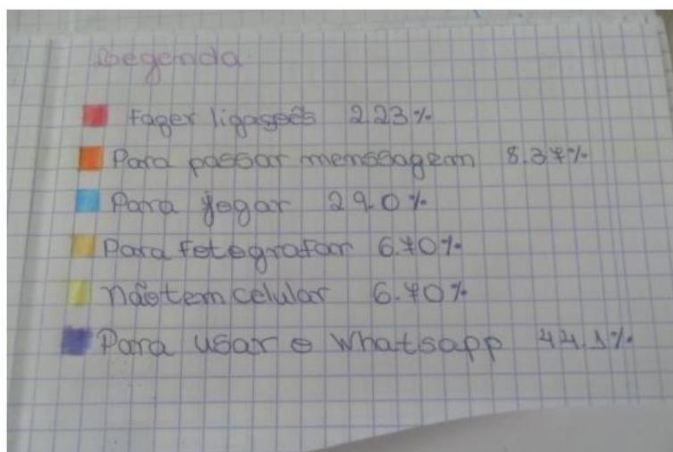 Legenda
Fazer ligações 2.23%
Para passar menssagem 8.37%
Para jogar 29.0%
Para fotografar 6.70%
não tem celular 6.70%
Para usar o Whatsapp 44.1%